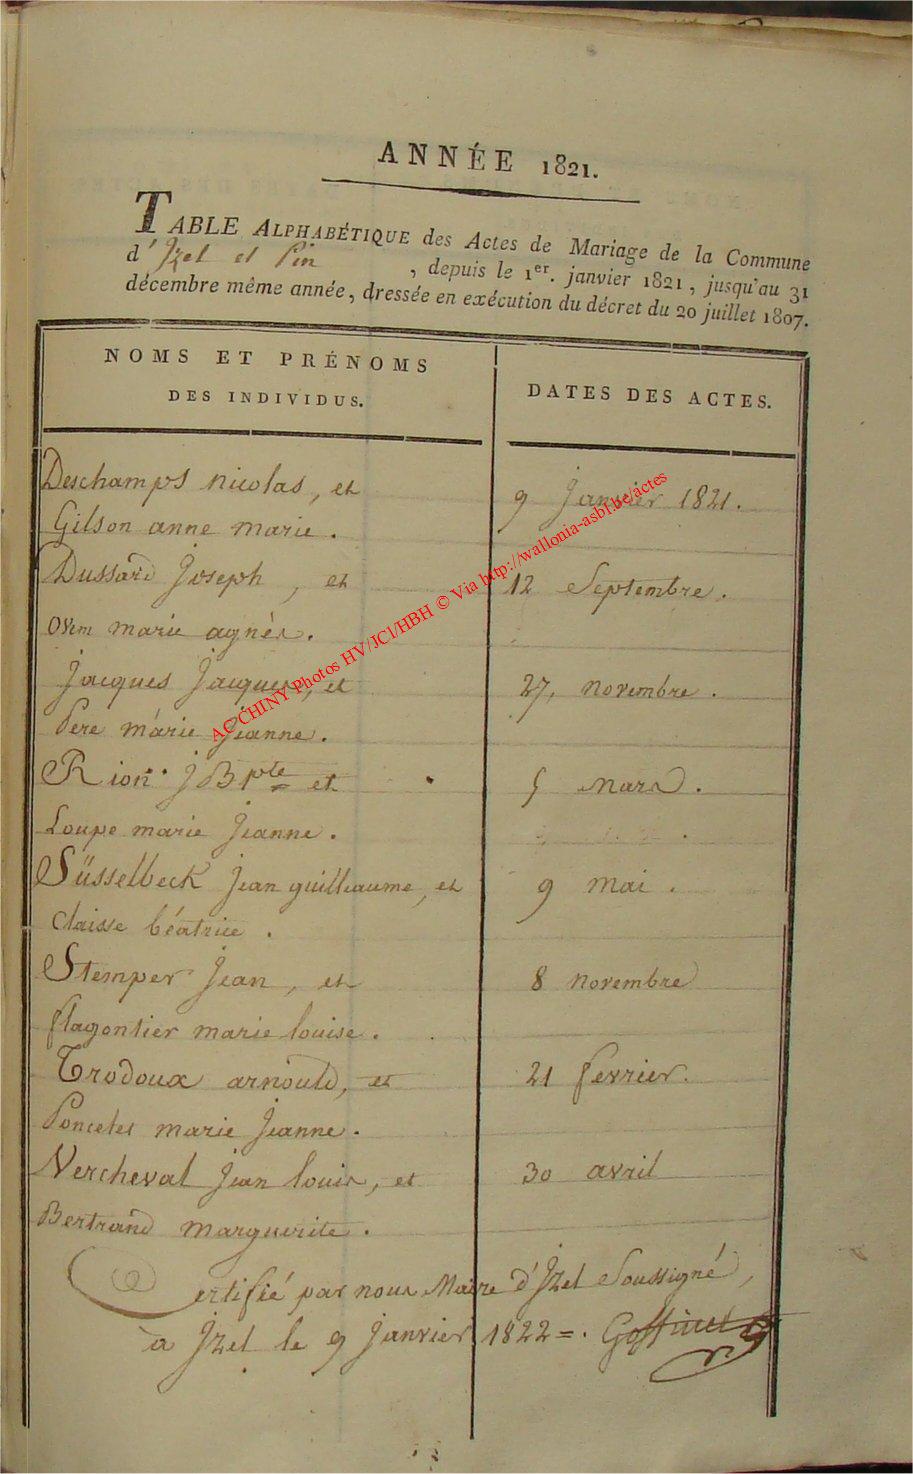 ANNÉE 1821.
TABLE ALPHABÉTIQUE des Actes de Mariage de la Commune
d'Izel et Pin , depuis le 1er. janvier 1821, jusqu'au 31
décembre même année, dressée en exécution du décret du 20 juillet 1807.
NOMS ET PRÉNOMS
DES INDIVIDUS.
DATES DES ACTES.
Deschamps nicolas, et
9 Janvier 1821.
Gilson anne marie.
Dussard Joseph, et
12 Septembre.
marie agnès.
Jacques Jacques, et
27, novembre.
Pere marie Jeanne.
Rion J Bpte et
5 Mars.
Loupe marie Jeanne.
Süsselbeck Jean guilleaume, et
9 mai.
Claisse béatrice.
Stemper Jean, et
8 novembre
flagontier marie louise.
Trodoux arnould, et
21 fevrier.
Poncelet marie Jeanne.
Vercheval Jean louis, et
30 avril
Bertrand marguerite.
Certifié par nous Maire d'Izel Soussigné,
a Izel le 9 Janvier 1822 =. Goffinet
AC CHINY Photos HV/JCl/HBH © Via http://wallonia-asbl.be/actes